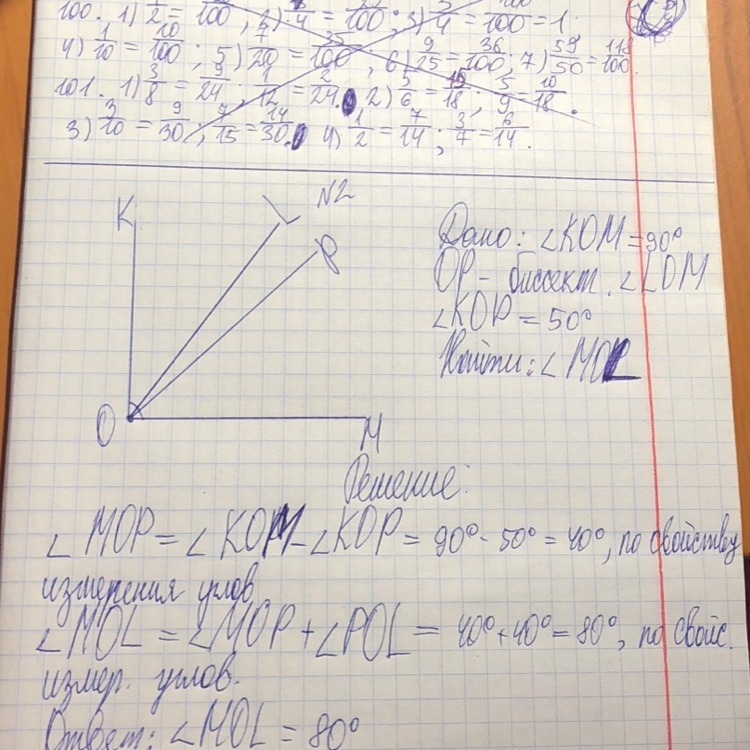 100. 1) 1/2 = /100; 2) /4 = /100; 3) /4 = /100 = 1.
4) 1/10 = 10/100; 5) 7/20 = 35/100, 6) 9/25 = 36/100, 7) 59/50 = 118/100.
101. 1) 3/8 = 9/24; 1/12 = /24. 2) 5/6 = 15/18; 5/9 = 10/18.
3) 3/10 = 9/30; 7/15 = 14/30. 4) 1/2 = 7/14; 3/7 = 6/14.
N2
K
L
P
O
M
Дано: ∠KOM = 90°
OP - биссект. ∠LOM
∠KOP = 50°
Найти: ∠MOL
Решение:
∠MOP = ∠KOM - ∠KOP = 90° - 50° = 40°, по свойству
измерения углов
∠MOL = ∠MOP + ∠POL = 40° + 40° = 80°, по свойс.
измер. углов.
Ответ: ∠MOL = 80°